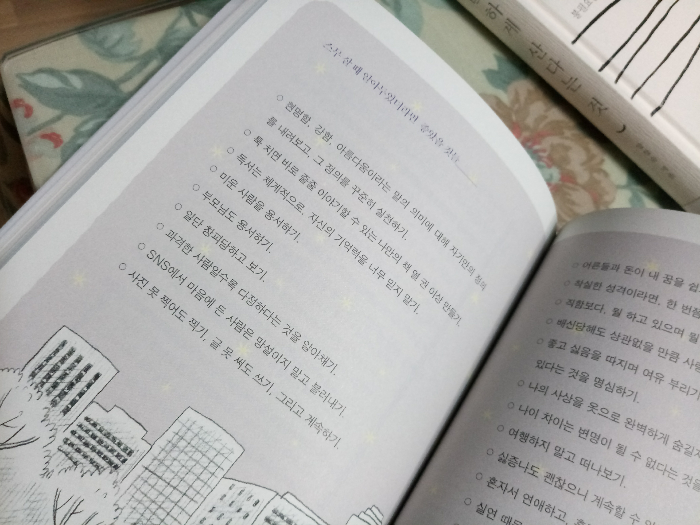 스무 살 때 알아두었더라면 좋았을 것들
하게 산다는 것
○ 현명함, 강함, 아름다움이라는 말의 의미에 대해 자기만의 정의
를 내려보고, 그 정의를 꾸준히 실천하기.
○ 툭 치면 바로 줄줄 이야기할 수 있는 나만의 책 열 권 이상 만들기.
○ 독서는 체계적으로. 자신의 기억력을 너무 믿지 말기.
○ 미운 사람을 용서하기.
○ 부모님도 용서하기.
○ 일단 창피당하고 보기.
○ 파격한 사람일수록 다정하다는 것을 알아채기.
○ SNS에서 마음에 든 사람은 망설이지 말고 불러내기.
○ 사진 못 찍어도 찍기, 글 못 써도 쓰기, 그리고 계속하기.
○ 어른들과 돈이 내 꿈을
○ 착실한 성격이라면, 한 번쯤
○ 직함보다, 뭘 하고 있으며
○ 배신당해도 상관없을 만큼
○ 좋고 싫음을 따지며 여유 부리기
있다는 것을 명심하기.
○ 나의 사상을 옷으로 완벽하게
○ 나이 차이는 변명이 될 수 없다는 것을
○ 여행하지 말고 떠나보기.
○ 싫증나도 괜찮으니 계속할 수
○ 혼자서 연애하고,
○ 실연 때문